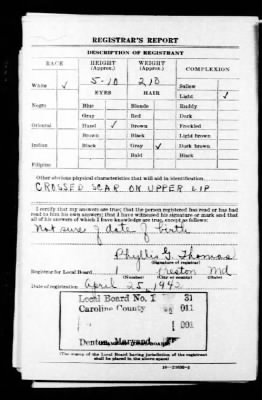 REGISTRAR'S REPORT
DESCRIPTION OF REGISTRANT
RACE HEIGHT (Approx.) WEIGHT (Approx.) COMPLEXION
5-10 210 Sallow
White ✓ EYES HAIR Light ✓
Negro Blue Blonde Ruddy
Gray Red Dark
Oriental Hazel ✓ Brown Freckled
Brown Black Light brown
Indian Black Gray ✓ Dark brown
Bald Black
Filipino
Other obvious physical characteristics that will aid in identification
CROSSED SCAR ON UPPER LIP
I certify that my answers are true; that the person registered has read or has had
read to him his own answers; that I have witnessed his signature or mark and that
all of his answers of which I have knowledge are true, except as follows:
Not sure of date of birth
Phyllis G. Thomas
(Signature of registrar)
Registrar for Local Board 1 Preston Md
(Number) (City or county) (State)
Date of registration April 25, 1942
Local Board No. 1 31
Caroline County 011
1 001
Denton, Maryland
(The stamp of the Local Board having jurisdiction of the registrant
shall be placed in the above space)